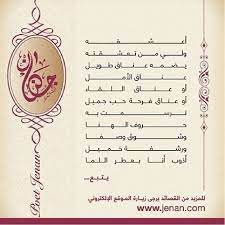 أعشقه
ولي من تعشقته
يضمه عناق طويل
عناق الأمل
أو عناق اللقاء
أو عناق فرحة حب جميل
حروف الهنا
وشوق وصفا
ورشفة خميل
أذوب أنا بعطر اللما
يتبع...
للمزيد من القصائد يرجى زيارة الموقع الإلكتروني
www.jenan.com
جنان
Poet Jenan